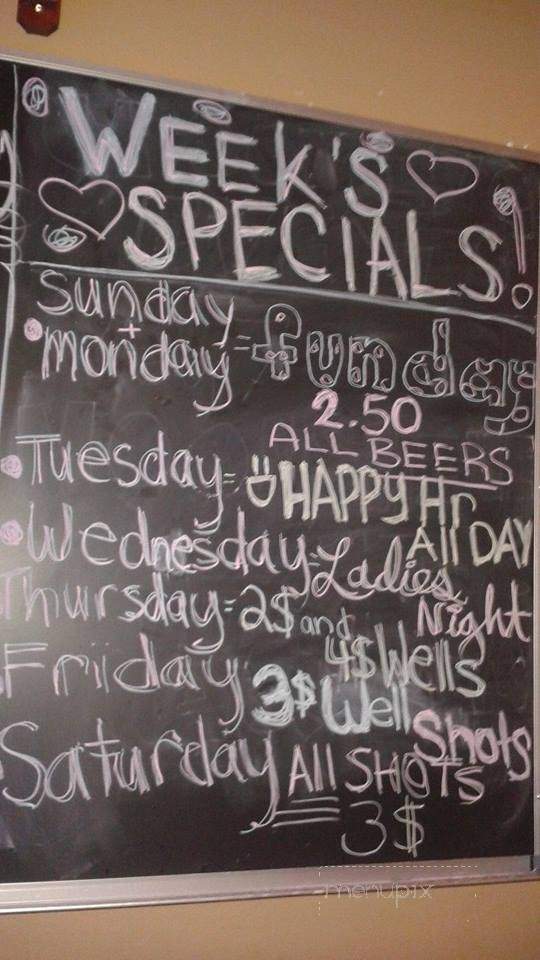 WEEK'S
SPECIALS!
Sunday
+
monday = funday
2.50
ALL BEERS
Tuesday = HAPPY Hr
All DAY
Wednesday = Ladies
Night
Thursday = 2$ and
4$ Wells
Friday 3$ Well
Shots
Saturday All SHOTS
3$
menupix